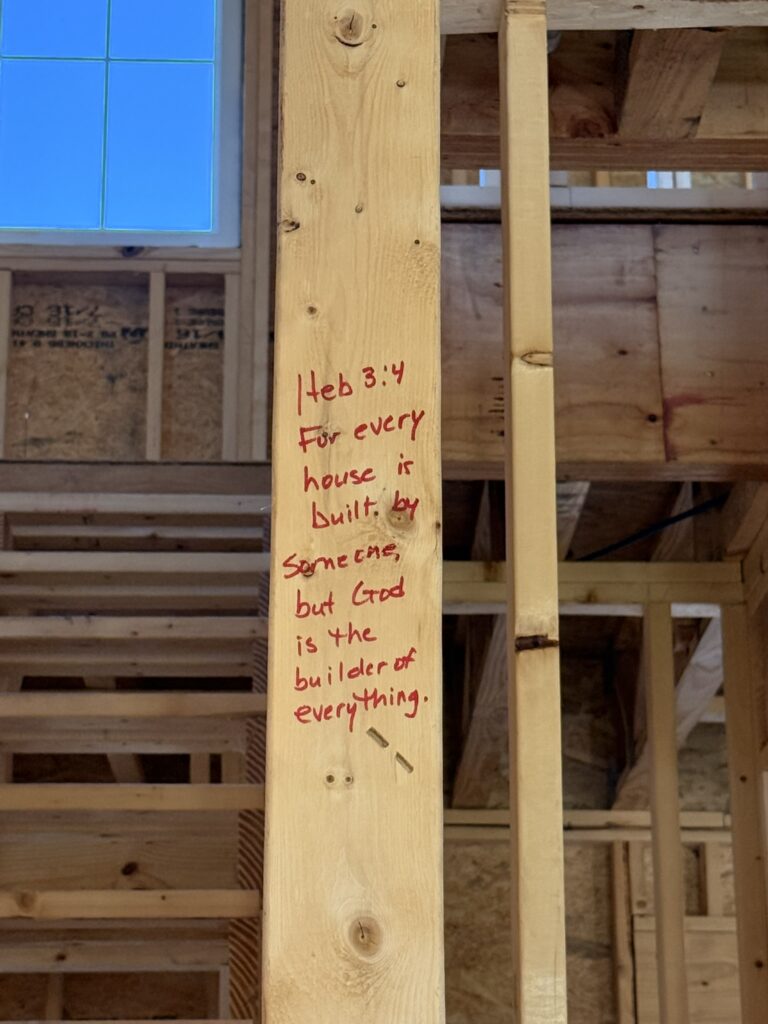 Heb 3:4
For every
house is
built by
someone,
but God
is the
builder of
everything.